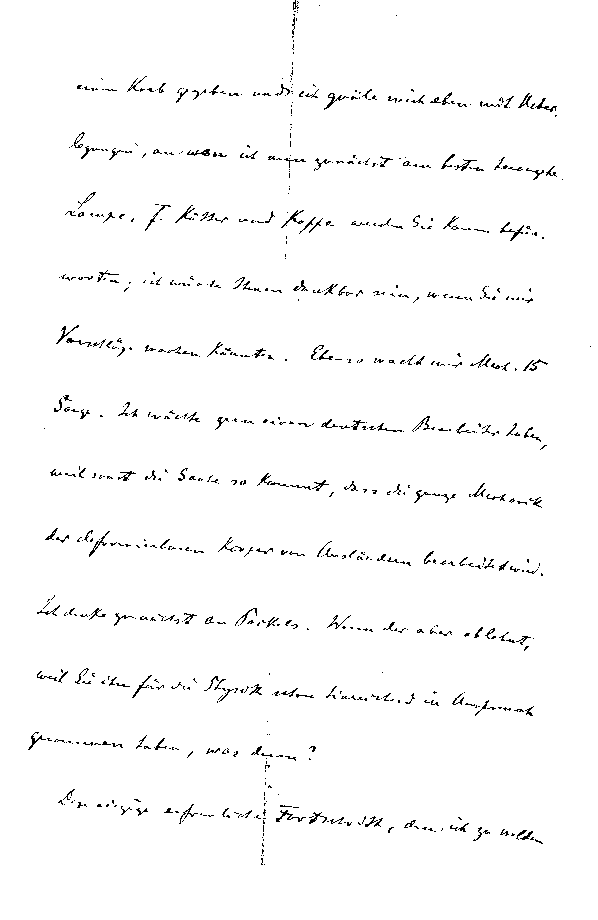 einen Korb gegeben und ich quäle mich eben mit Ueber-
legungen, an wen ich nun zunächst am besten herangehe.
Lampe, F. Kötter und Koppe werden Sie kaum befür-
worten; ich würde Ihnen dankbar sein, wenn Sie mir
Vorschläge machen könnten. Ebenso macht mir Mech. 15
Sorge. Ich möchte gern einen deutschen Bearbeiter haben,
weil sonst die Sache so kommt, dass die ganze Mechanik
der deformierbaren Körper von Ausländern bearbeitet wird.
Ich denke zunächst an Pockels. Wenn der aber ablehnt,
weil Sie ihn für die Physik schon hinreichend in Anspruch
genommen haben, was dann?
Der einzige erfreuliche Fortschritt, den ich zu melden